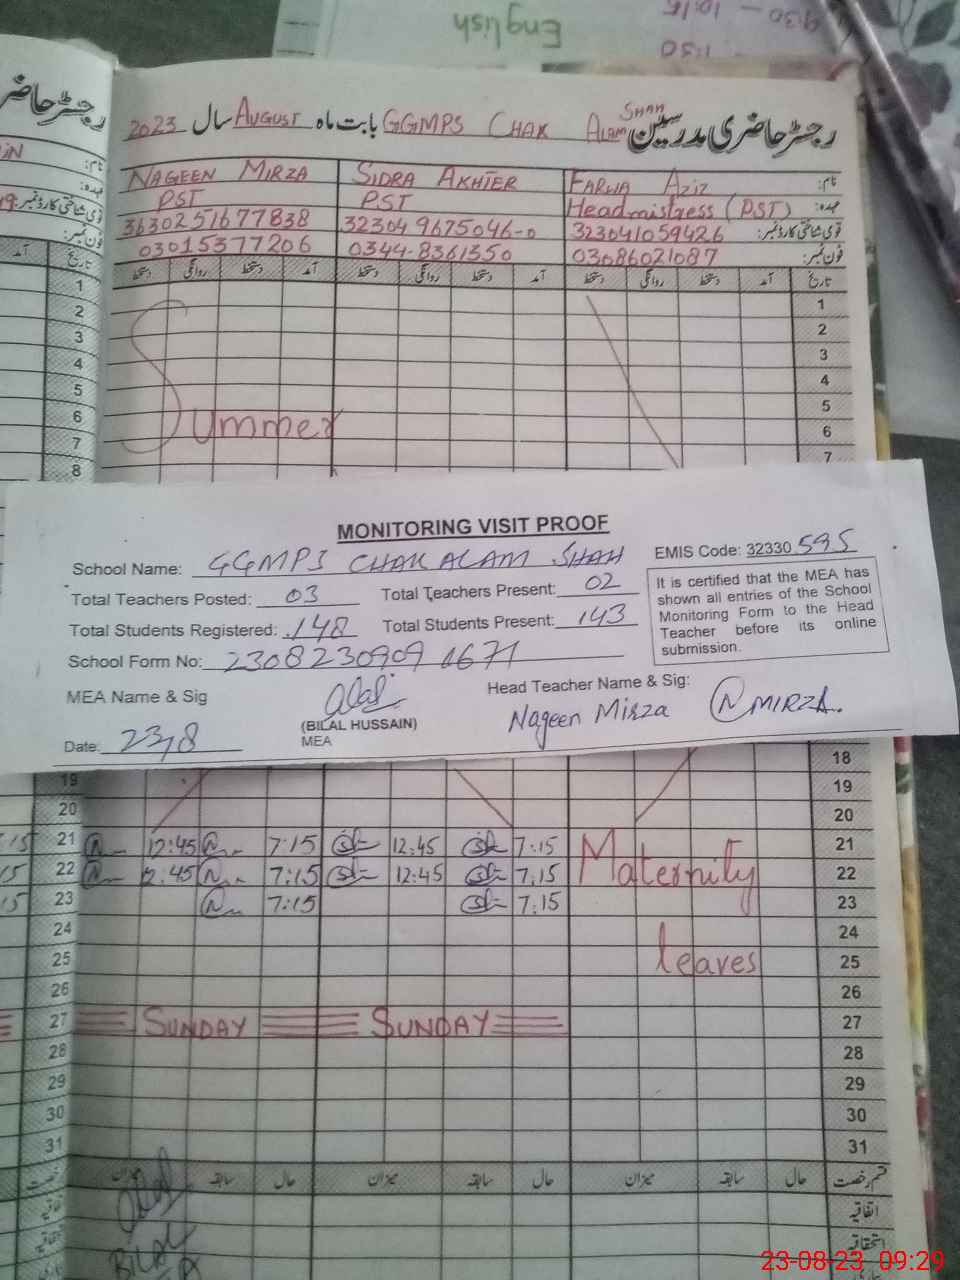 English
9:30 - 10:15
1:30
رجسٹر حاضری مدرسین GGMPS CHAK ALAM SHAH بابت ماہ AUGUST سال 2023
نام: FARWA AZIZ SIDRA AKHTER NAGEEN MIRZA
عہدہ: Headmistress (PST) PST PST
قومی شناختی کارڈ نمبر: 323041059426 323049675046-0 3630251677838
فون نمبر: 03086021087 0344-8361550 03015377206
تاریخ آمد دستخط روانگی دستخط آمد دستخط روانگی دستخط آمد دستخط روانگی
1
2
3
4
5
6
7
8
Summer
MONITORING VISIT PROOF
School Name: GGMPS CHAK ALAM SHAH EMIS Code: 32330 595
Total Teachers Posted: 03 Total Teachers Present: 02
Total Students Registered: 148 Total Students Present: 143
School Form No: 2308230909 1671
It is certified that the MEA has
shown all entries of the School
Monitoring Form to the Head
Teacher before its online
submission.
MEA Name & Sig
(BILAL HUSSAIN)
MEA
Head Teacher Name & Sig:
Nageen Mirza N MIRZA.
Date: 23/8
18
19
20
21 12:45 7:15 12:45 7:15 21
22 12:45 7:15 12:45 7:15 22
23 7:15 7:15 23
Maternity
leaves
24
25
26
27 SUNDAY SUNDAY 27
28
29
30
31
قسم رخصت حال سابقہ میزان حال سابقہ میزان حال سابقہ میزان
اتفاقیہ
استحقاقیہ
BILAL
23-08-23 09:29